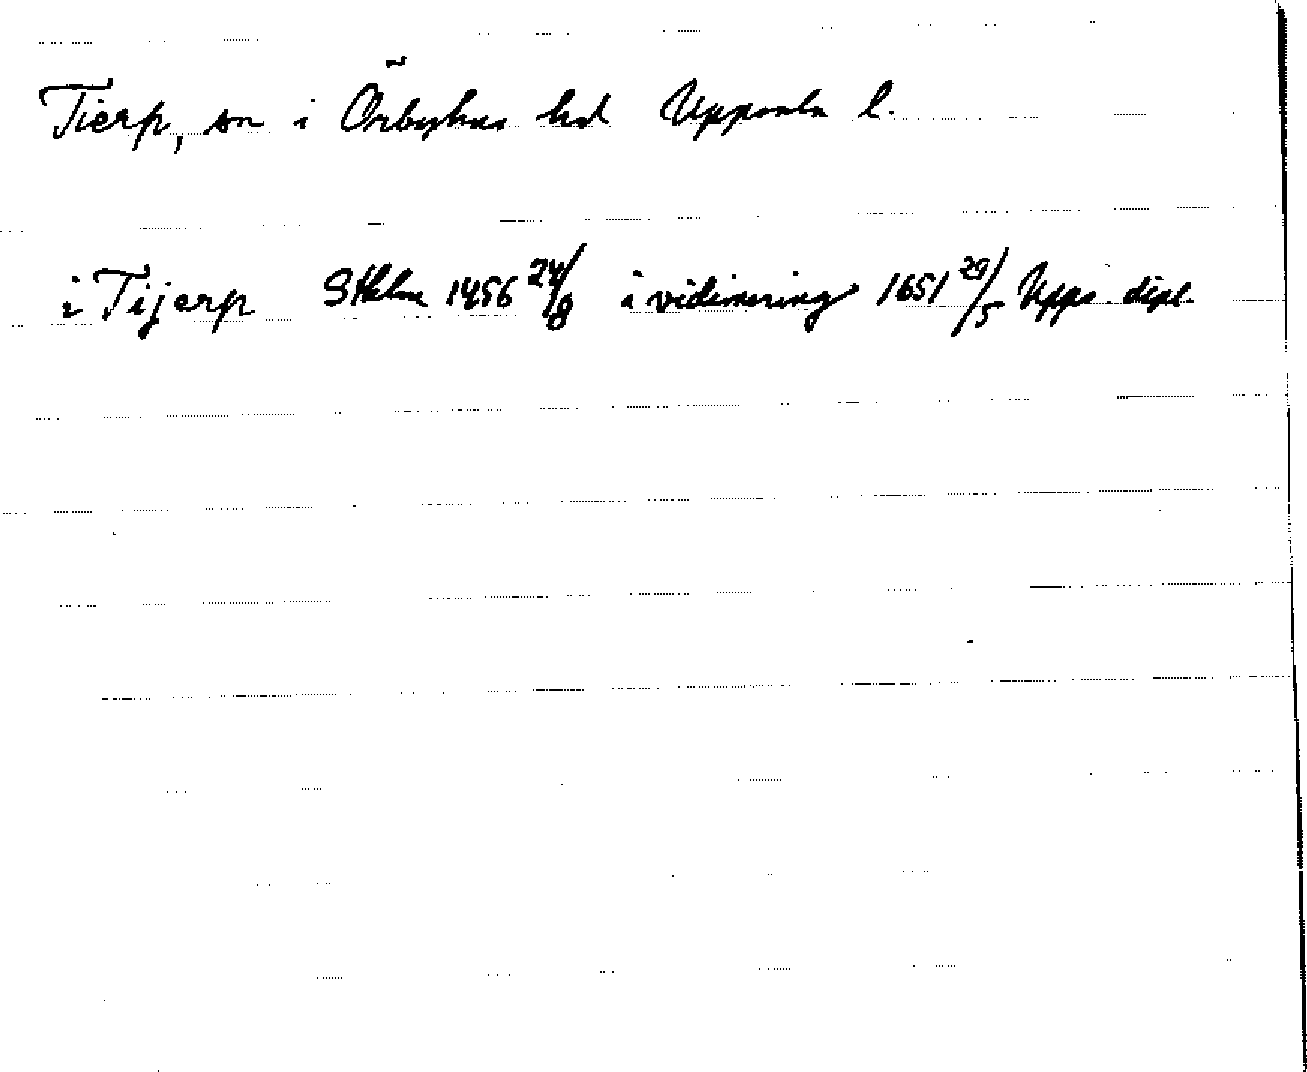 Tierp, sn i Örbyhus hd Uppsala l.
i Tijerp Sthlm 1456 24/8 i vidimering 1651 29/5 Upps. dipl.